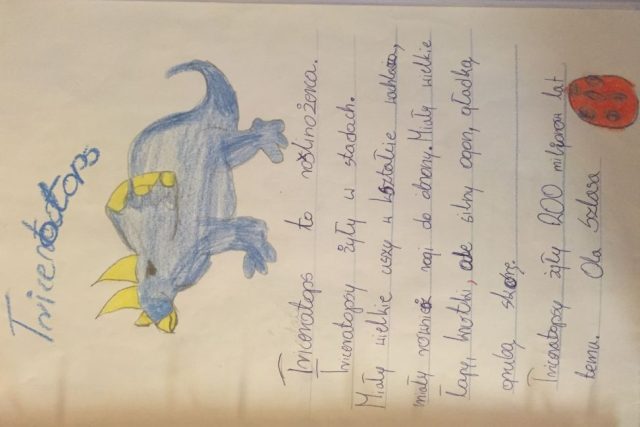 Triceratops
Triceratops to roślinożerca.
Triceratopsy żyły w stadach.
Miały wielkie uszy w kształcie wachlaża,
miały również rogi do obrony. Miały wielkie
łapy, krótki, ale silny ogon, gładką
grubą skórę.
Triceratopsy żyły 200 milionów lat
temu. Ola 5 klasa